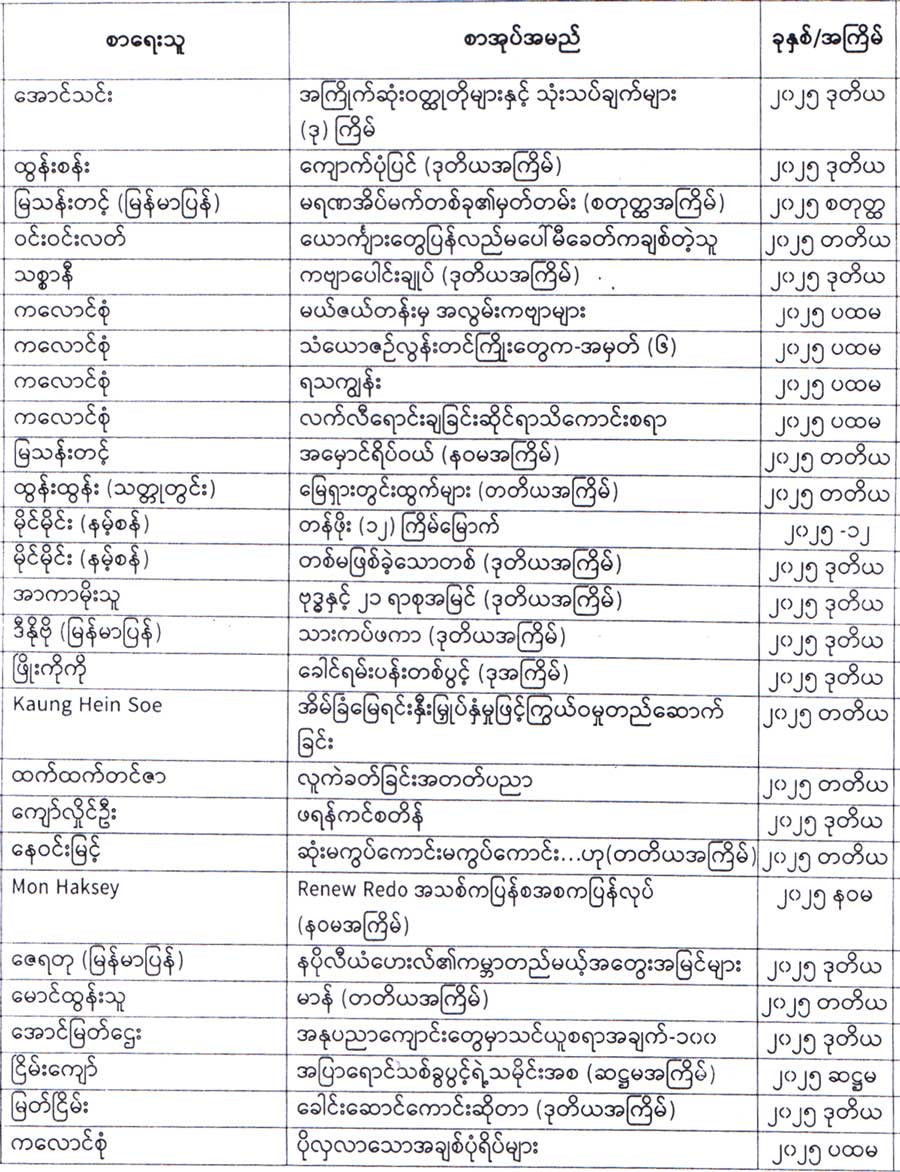 စာရေးသူ စာအုပ်အမည် ခုနှစ်/အကြိမ်
အောင်သင်း အကြိုက်ဆုံးဝတ္ထုတိုများနှင့် သုံးသပ်ချက်များ ၂၀၂၅ ဒုတိယ
(ဒု) ကြိမ်
ထွန်းစန်း ကျောက်ပုံပြင် (ဒုတိယအကြိမ်) ၂၀၂၅ ဒုတိယ
မြသန်းတင့် (မြန်မာပြန်) မရဏအိပ်မက်တစ်ခု၏မှတ်တမ်း (စတုတ္ထအကြိမ်) ၂၀၂၅ စတုတ္ထ
ဝင်းဝင်းလတ် ယောင်္ကျားတွေပြန်လည်မပေါ်မီခေတ်ကချစ်တဲ့သူ ၂၀၂၅ တတိယ
သစ္စာနီ ကဗျာပေါင်းချုပ် (ဒုတိယအကြိမ်) ၂၀၂၅ ဒုတိယ
ကလောင်စုံ မယ်ဇယ်တန်းမှ အလွမ်းကဗျာများ ၂၀၂၅ ပထမ
ကလောင်စုံ သံယောဇဉ်လွန်းတင်ကြိုးတွေက-အမှတ် (၆) ၂၀၂၅ ပထမ
ကလောင်စုံ ရသကျွန်း ၂၀၂၅ ပထမ
ကလောင်စုံ လက်လီရောင်းချခြင်းဆိုင်ရာသိကောင်းစရာ ၂၀၂၅ ပထမ
မြသန်းတင့် အမှောင်ရိပ်ဝယ် (နဝမအကြိမ်) ၂၀၂၅ တတိယ
ထွန်းထွန်း (သတ္တုတွင်း) မြေရှားတွင်းထွက်များ (တတိယအကြိမ်) ၂၀၂၅ တတိယ
မိုင်မိုင်း (နမ့်စန်) တန်ဖိုး (၁၂) ကြိမ်မြောက် ၂၀၂၅ -၁၂
မိုင်မိုင်း (နမ့်စန်) တစ်မဖြစ်ခဲ့သောတစ် (ဒုတိယအကြိမ်) ၂၀၂၅ ဒုတိယ
အာကာမိုးသူ ဗုဒ္ဓနှင့် ၂၁ ရာစုအမြင် (ဒုတိယအကြိမ်) ၂၀၂၅ ဒုတိယ
ဒီနိုဗို (မြန်မာပြန်) သားကပ်ဖကာ (ဒုတိယအကြိမ်) ၂၀၂၅ ဒုတိယ
ဖြိုးကိုကို ခေါင်ရမ်းပန်းတစ်ပွင့် (ဒုအကြိမ်) ၂၀၂၅ ဒုတိယ
Kaung Hein Soe အိမ်ခြံမြေရင်းနှီးမြှုပ်နှံမှုဖြင့်ကြွယ်ဝမှုတည်ဆောက် ၂၀၂၅ တတိယ
ခြင်း
ထက်ထက်တင်ဇာ လူကဲခတ်ခြင်းအတတ်ပညာ ၂၀၂၅ တတိယ
ကျော်လှိုင်ဦး ဖရန်ကင်စတိန် ၂၀၂၅ ဒုတိယ
နေဝင်းမြင့် ဆုံးမကွပ်ကောင်းမကွပ်ကောင်း...ဟု(တတိယအကြိမ်) ၂၀၂၅ တတိယ
Mon Haksey Renew Redo အသစ်ကပြန်စအစကပြန်လုပ် ၂၀၂၅ နဝမ
(နဝမအကြိမ်)
ဇေရတု (မြန်မာပြန်) နပိုလီယံဟေးလ်၏ကမ္ဘာတည်မယ့်အတွေးအမြင်များ ၂၀၂၅ ဒုတိယ
မောင်ထွန်းသူ မာန် (တတိယအကြိမ်) ၂၀၂၅ တတိယ
အောင်မြတ်ဌေး အနုပညာကျောင်းတွေမှာသင်ယူစရာအချက်-၁၀၀ ၂၀၂၅ ဒုတိယ
ငြိမ်းကျော် အပြာရောင်သစ်ခွပွင့်ရဲ့သမိုင်းအစ (ဆဋ္ဌမအကြိမ်) ၂၀၂၅ ဆဋ္ဌမ
မြတ်ငြိမ်း ခေါင်းဆောင်ကောင်းဆိုတာ (ဒုတိယအကြိမ်) ၂၀၂၅ ဒုတိယ
ကလောင်စုံ ပိုလှလာသောအချစ်ပုံရိပ်များ ၂၀၂၅ ပထမ